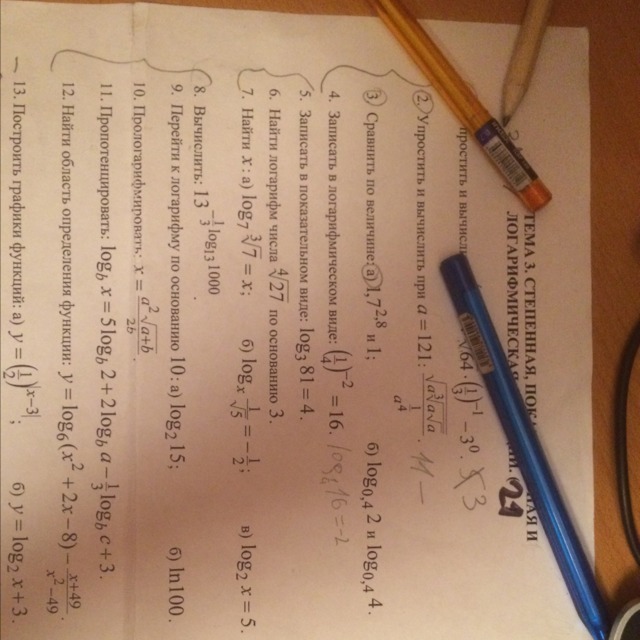 ТЕМА 3. СТЕПЕННАЯ,
ЛОГАРИФМИЧЕСКАЯ
21
√64 · (1/3)^{-1} − 3^0. 3
2. Упростить и вычислить при a = 121: 11 −
3. Сравнить по величине: а) 1,7^{2,8} и 1; б) log_{0,4} 2 и log_{0,4} 4.
4. Записать в логарифмическом виде: (1/4)^{-2} = 16. 16 = -2
5. Записать в показательном виде: log_3 81 = 4.
6. Найти логарифм числа ∜27 по основанию 3.
7. Найти x: а) log_7 ∛7 = x; б) log_x 1/√5 = −1/2; в) log_2 x = 5.
8. Вычислить: 13^{−1/3 log_{13} 1000}.
9. Перейти к логарифму по основанию 10: а) log_2 15; б) ln100.
10. Прологарифмировать: x = a^2√(a+b)/2b.
11. Пропотенцировать: log_b x = 5log_b 2 + 2log_b a − 1/3 log_b c + 3.
12. Найти область определения функции: y = log_6(x^2 + 2x − 8) − (x+49)/(x^2−49).
13. Построить графики функций: а) y = (1/2)^{|x−3|}; б) y = log_2 x + 3.